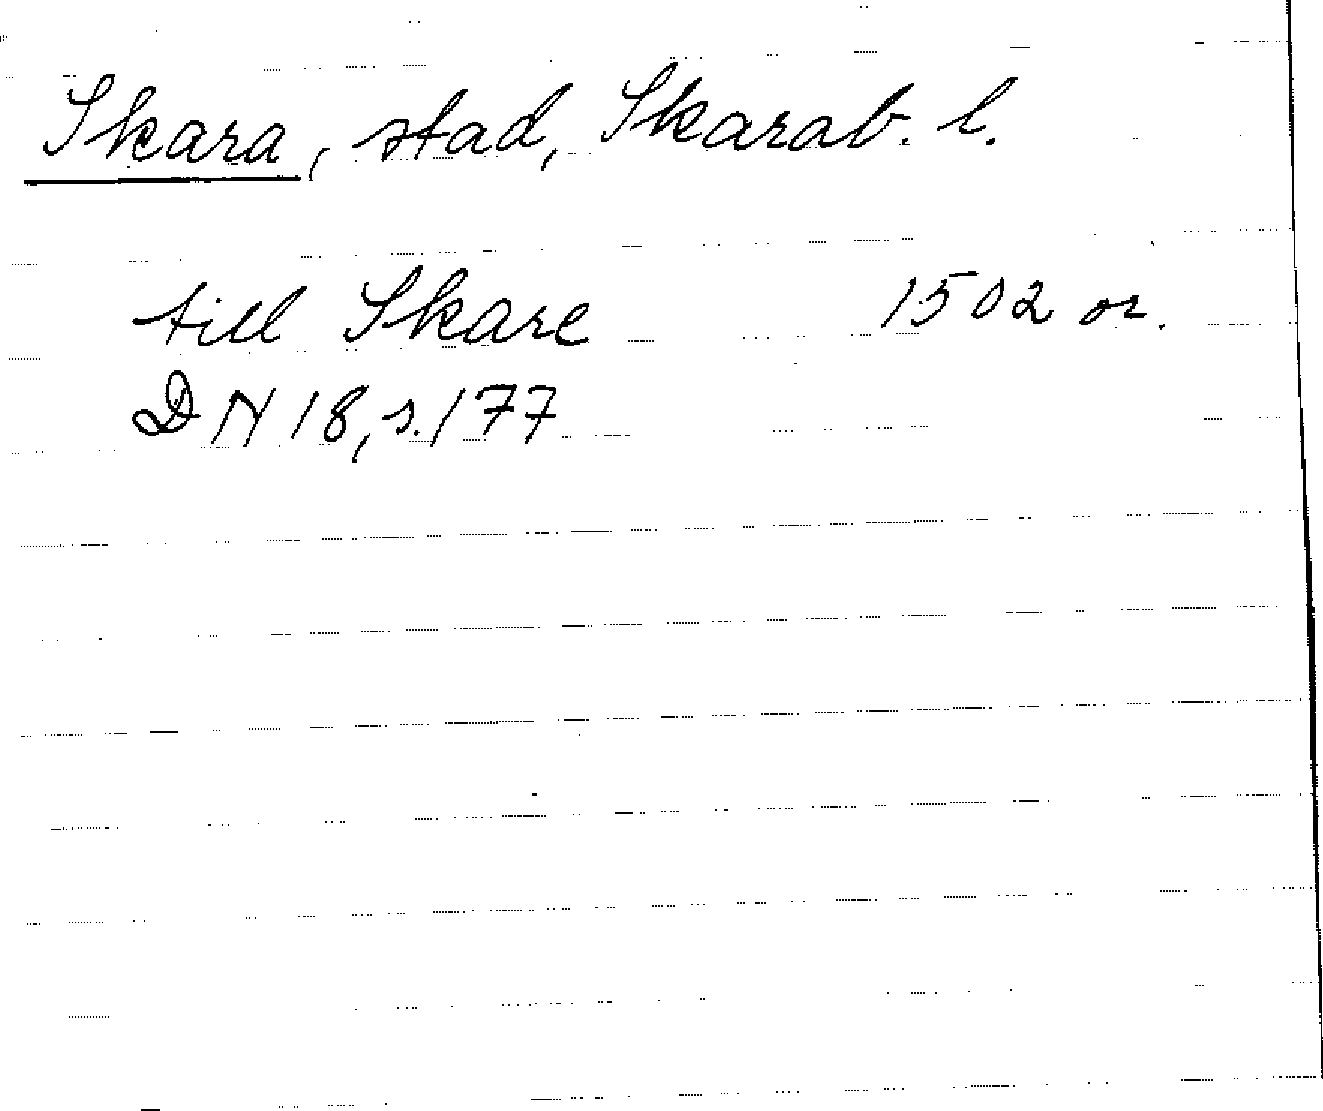 Skara, stad, Skarab. l.
till Skare 1502 or.
DN 18, s. 177